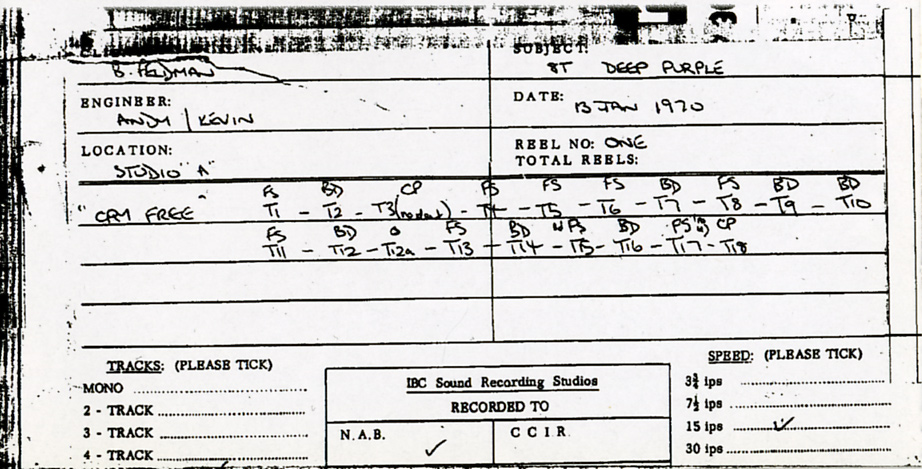 B. FELDMAN
SUBJECT:
8T DEEP PURPLE
ENGINEER:
ANDY / KEVIN
DATE:
13 JAN 1970
LOCATION:
STUDIO "A"
REEL NO: ONE
TOTAL REELS:
FS BD CP FS FS FS BD FS BD BD
"CRY FREE" T1 - T2 - T3 - T4 - T5 - T6 - T7 - T8 - T9 - T10
FS BD FS BD BD CP
T11 - T12 - T12a - T13 - T14 - T15 - T16 - T17 - T18
TRACKS: (PLEASE TICK)
MONO
2 - TRACK
3 - TRACK
4 - TRACK
IBC Sound Recording Studios
RECORDED TO
N.A.B. ✓
C C I R
SPEED: (PLEASE TICK)
3¾ ips
7½ ips
15 ips ✓
30 ips